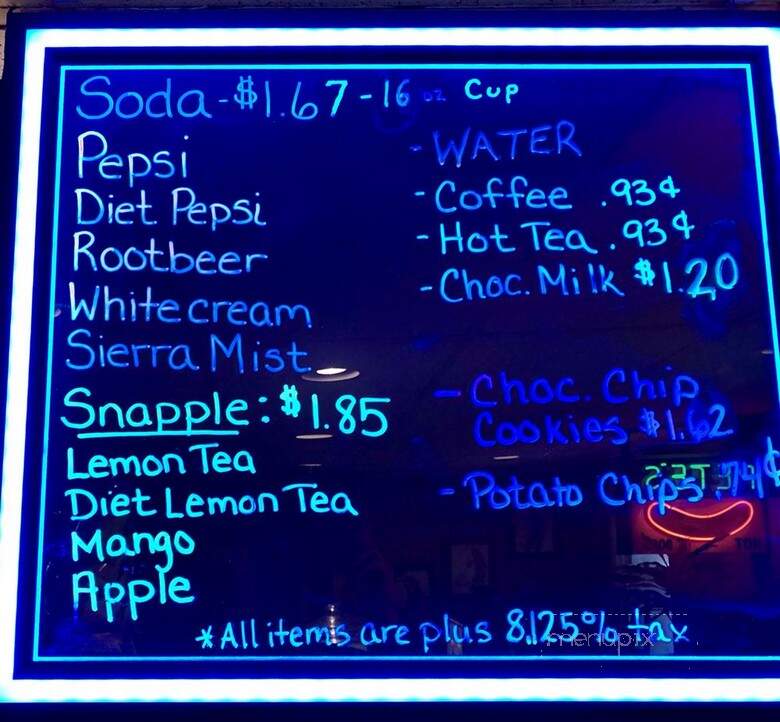 Soda - $1.67 - 16 oz Cup
Pepsi
Diet Pepsi
Rootbeer
White cream
Sierra Mist
Snapple: $1.85
Lemon Tea
Diet Lemon Tea
Mango
Apple
- WATER
- Coffee .93¢
- Hot Tea .93¢
- Choc. Milk $1.20
- Choc. Chip
Cookies $1.62
- Potato Chips .74¢
*All items are plus 8.125% tax
menupix